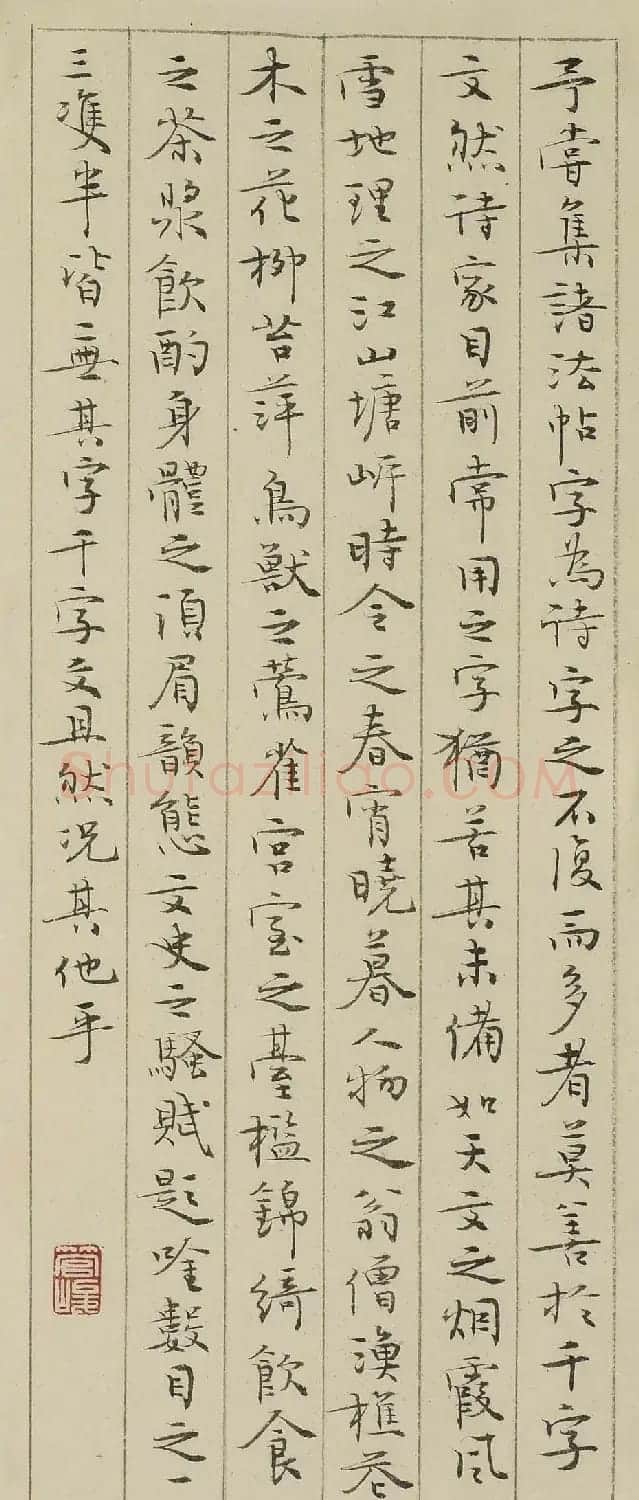 予嘗集諸法帖字為詩字之不復而多者莫善於千字
文然詩家目前常用之字猶苦其未備如天文之烟霞風
雪地理之江山塘岸時令之春宵曉暮人物之翁僧漁樵花
木之花柳苔萍鳥獸之鶯雀宮室之臺檻錦綺飲食
之茶漿飲酌身體之須眉韻態文史之騷賦題吟數目之一
三雙半皆無其字千字文且然況其他乎
Shufaziliao.COM